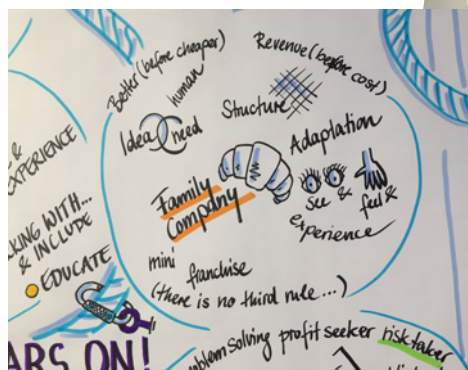 Better (before cheaper)
Revenue (before cost)
human
Idea need
Structure
Adaptation
Family
Company
see & feel &
experience
mini
franchise
(there is no third rule...)
&
EXPERIENCE
WITH...
& INCLUDE
EDUCATE
ON!
solving profit seeker risktaker